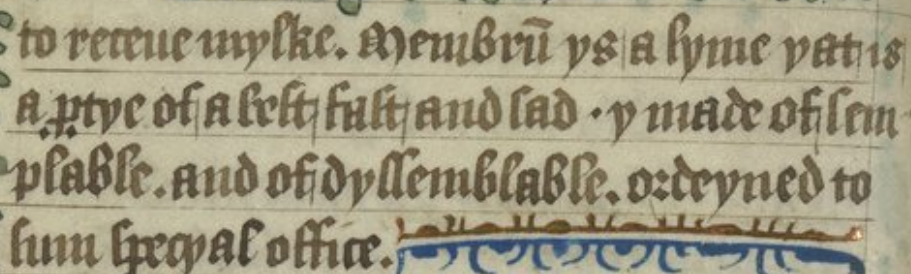 to receue mylke. Membrū ys a lyme yat is
a ꝑtye of a best, fast, and sad · y made of sem
plable. and of dyssemblable. ordeyned to
sum specyal office.